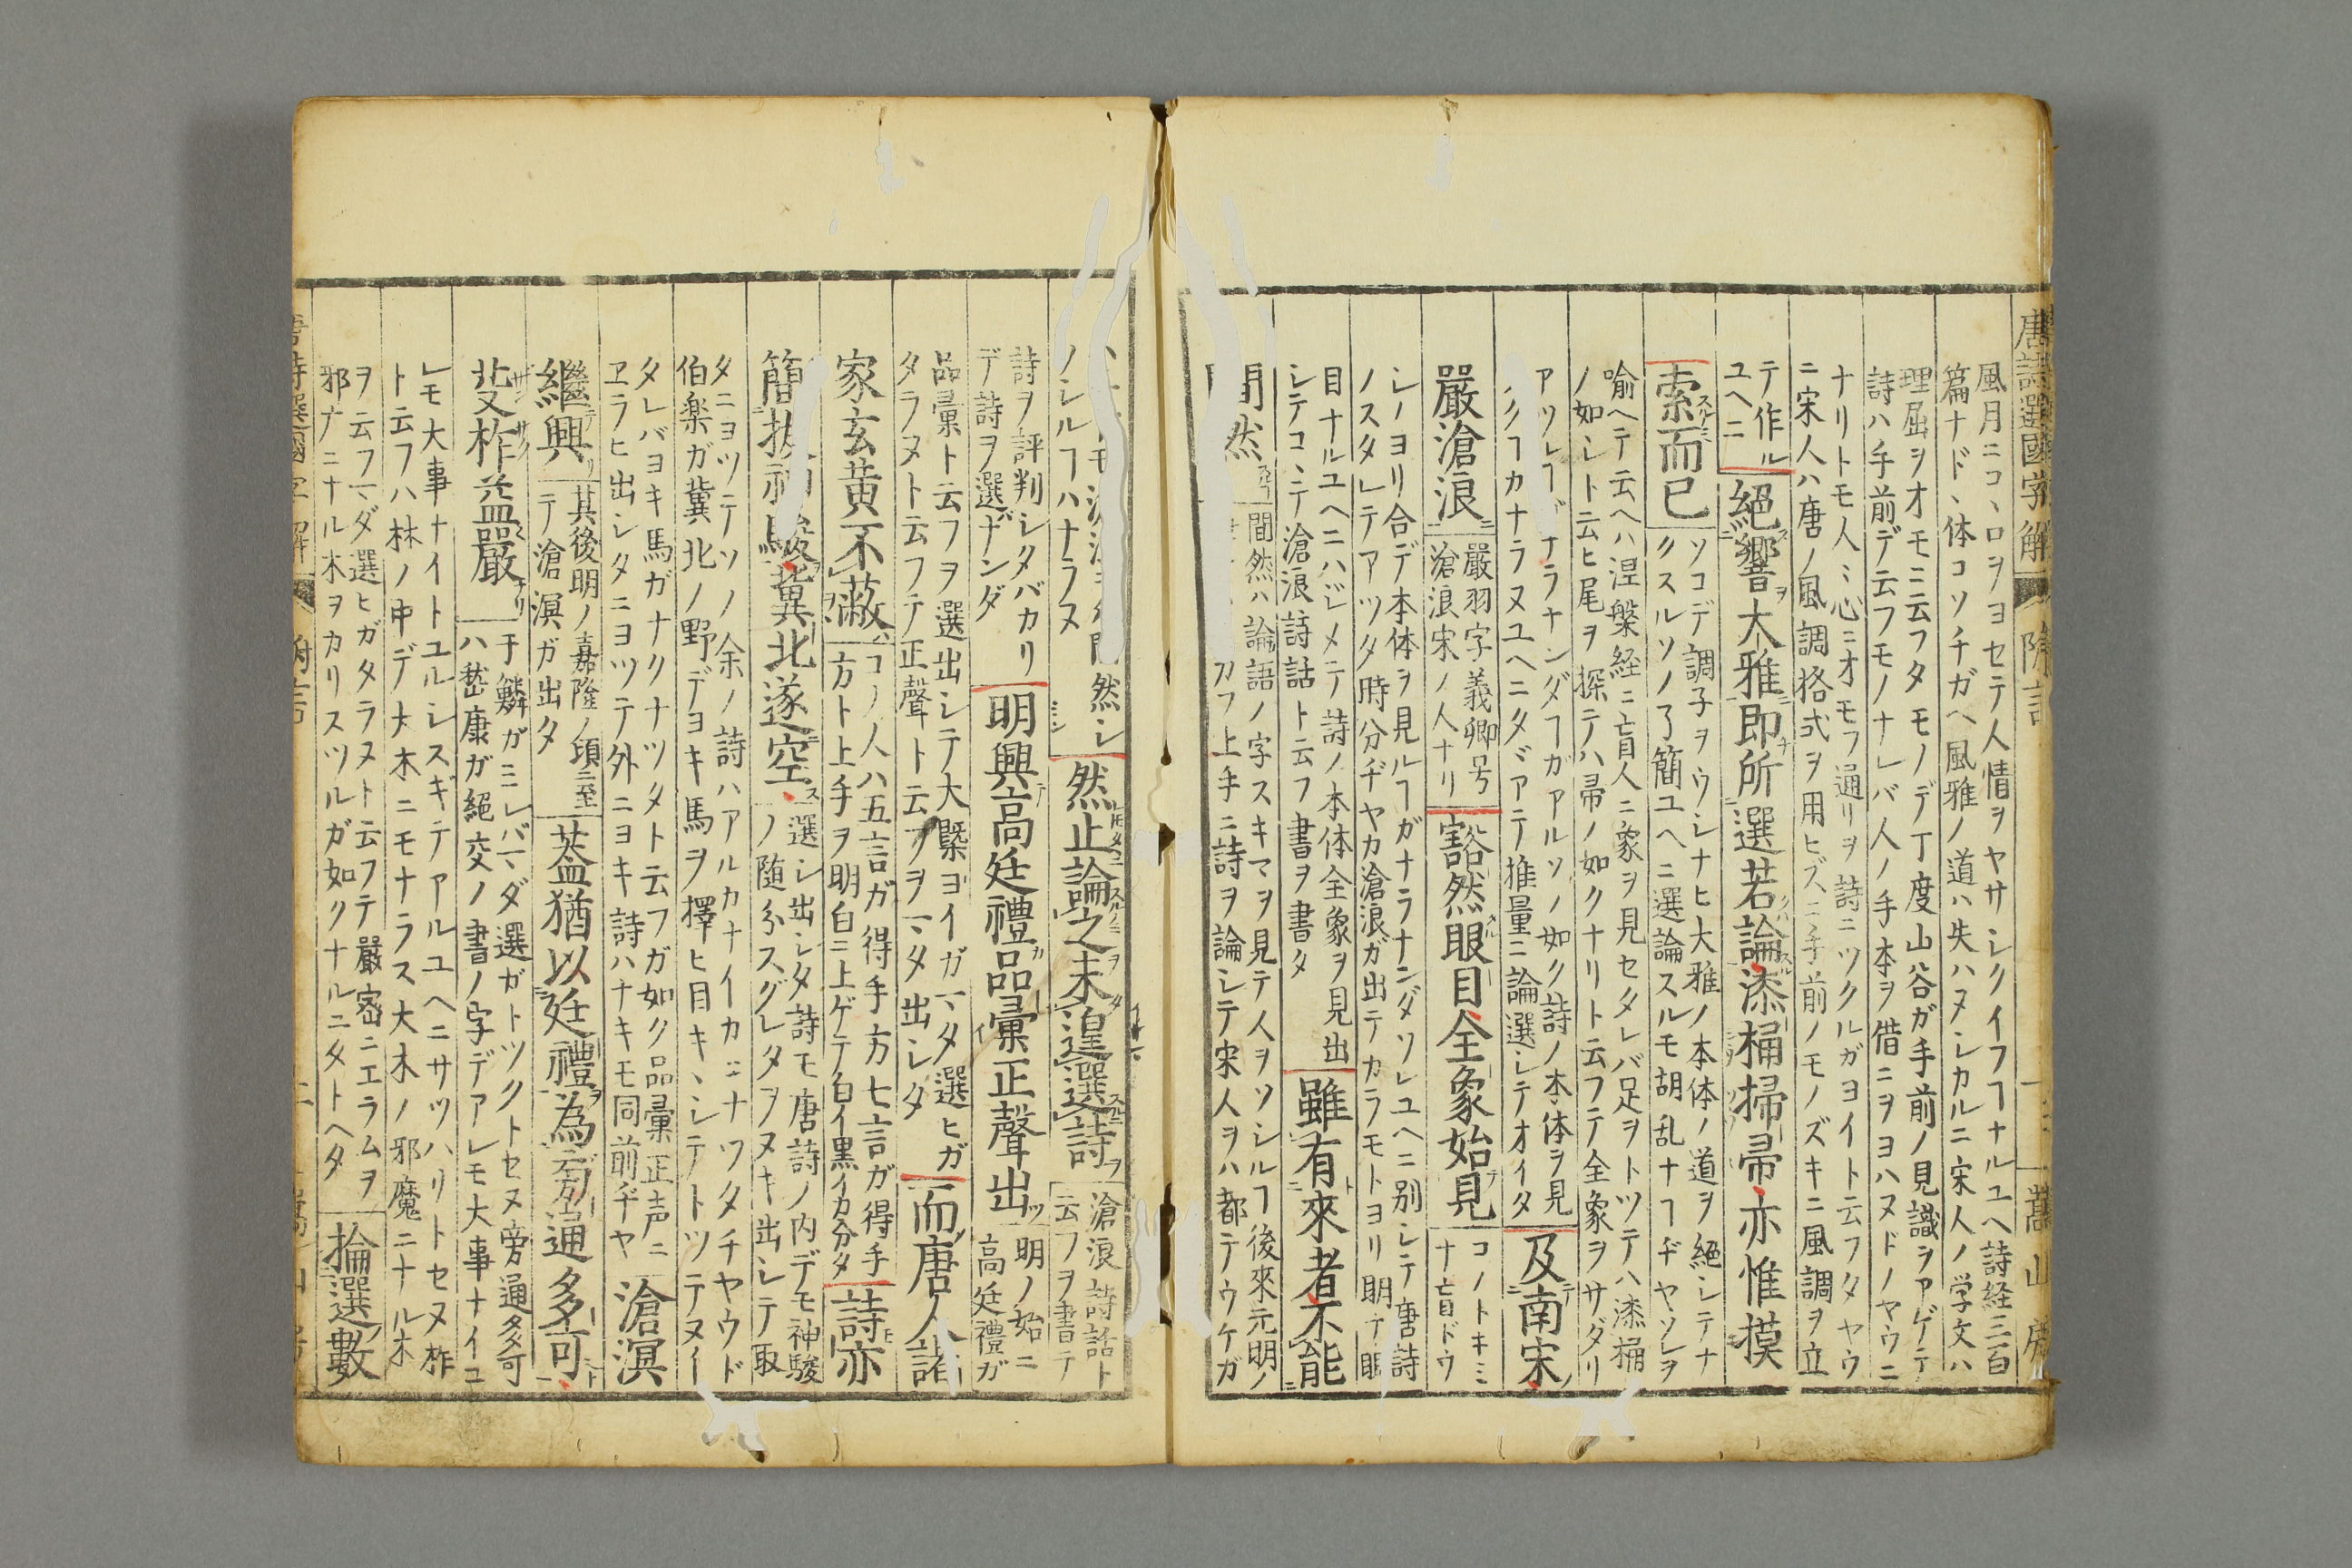 唐詩選國字解 附言 嵩山房
風月ニコヽロヲヨセテ人情ヲヤサシクイフヿナルユヘ詩経三百
篇ナドヽ体コソチガヘ風雅ノ道ハ失ハヌシカルニ宋人ノ学文ハ
理屈ヲオモニ云フタモノデ丁度山谷ガ手前ノ見識ヲアゲテ
詩ハ手前デ云フモノナレバ人ノ手本ヲ借ニヲヨハヌドノヤウニ
ナリトモ人〻心ニオモフ通リヲ詩ニツクルガヨイト云フタヤウ
ニ宋人ハ唐ノ風調格式ヲ用ヒズニ手前ノモノズキニ風調ヲ立
テ作ル
ユヘニ
絕響大雅即所選若論漆桶掃帚亦惟摸
索而已
ソコデ調子ヲウシナヒ大雅ノ本体ノ道ヲ絕シテナ
クスルソノ了簡ユヘニ選論スルモ胡乱ナヿヂヤソレヲ
喻ヘテ云ヘハ涅槃経ニ盲人ニ象ヲ見セタレバ足ヲトツテハ漆桶
ノ如シト云ヒ尾ヲ探テハ帚ノ如クナリト云フテ全象ヲサダリ
アツレヿナラナンダヿガアルソノ如ク詩ノ本体ヲ見
クヿカナラヌユヘニタヾアテ推量ニ論選シテオイタ
及南宋
嚴滄浪
嚴羽字義卿号
滄浪宋ノ人ナリ
豁然眼目全象始見
コノトキミ
ナ盲ドウ
シノヨリ合デ本体ヲ見ルヿガナラナンダソレユヘニ別シテ唐詩
ノスタレテアツタ時分ヂヤカ滄浪ガ出テカラモトヨリ明テ眼
目ナルユヘニハジメテ詩ノ本体全象ヲ見出
シテコヽニテ滄浪詩話ト云フ書ヲ書タ
雖有來者不能
間然
間然ハ論語ノ字スキマヲ見テ人ヲソシルヿ後來元明ノ
上手ニ詩ヲ論シテ宋人ヲハ都テウケガ
然シ
ノシルヿハナラヌ
然止論之未遑選詩
滄浪詩話ト
云フヲ書テ
詩ヲ評判シタバカリ
デ詩ヲ選ナンダ
明興高廷禮品彙正聲出
明ノ始ニ
高廷禮ガ
品彙ト云フヲ選出シテ大槩ヨイガマダ選ヒガ
タラヌト云フテ正聲ト云フヲマタ出シタ
而唐人諸
家玄黄不蔽
コノ人ハ五言ガ得手方七言ガ得手
方ト上手ヲ明白ニ上ゲテ白イ黒イカ分タ
詩亦
簡抜神駿冀北遂空
選シ出シタ詩モ唐詩ノ内デモ神駿
ノ随分スグレタヲヌキ出シテ取
タニヨツテソノ余ノ詩ハアルカナイカニナツタチヤウド
伯楽ガ冀北ノ野デヨキ馬ヲ擇ヒ目キヽシテトツテヌイ
タレバヨキ馬ガナクナツタト云フガ如ク品彙正声ニ
ヱラヒ出シタニヨツテ外ニヨキ詩ハナキモ同前ヂヤ
滄溟
繼興
其後明ノ嘉隆ノ頃ニ至
テ滄溟ガ出タ
葢猶以廷禮為旁通多可
于鱗ガミレバマダ選ガトツクトセヌ旁通多可
ハ嵆康ガ絕交ノ書ノ字デアレモ大事ナイコ
レモ大事ナイトユルシスギテアルユヘニサツハリトセヌ柞
ト云フハ林ノ中デ大木ニモナラス大木ノ邪魔ニナル木
芟柞益嚴
ヲ云フマダ選ヒガタラヌト云フテ嚴密ニエラムヲ
邪ナニナル木ヲカリスツルガ如クナルニタトヘタ
掄選數
唐詩選國字解 附言